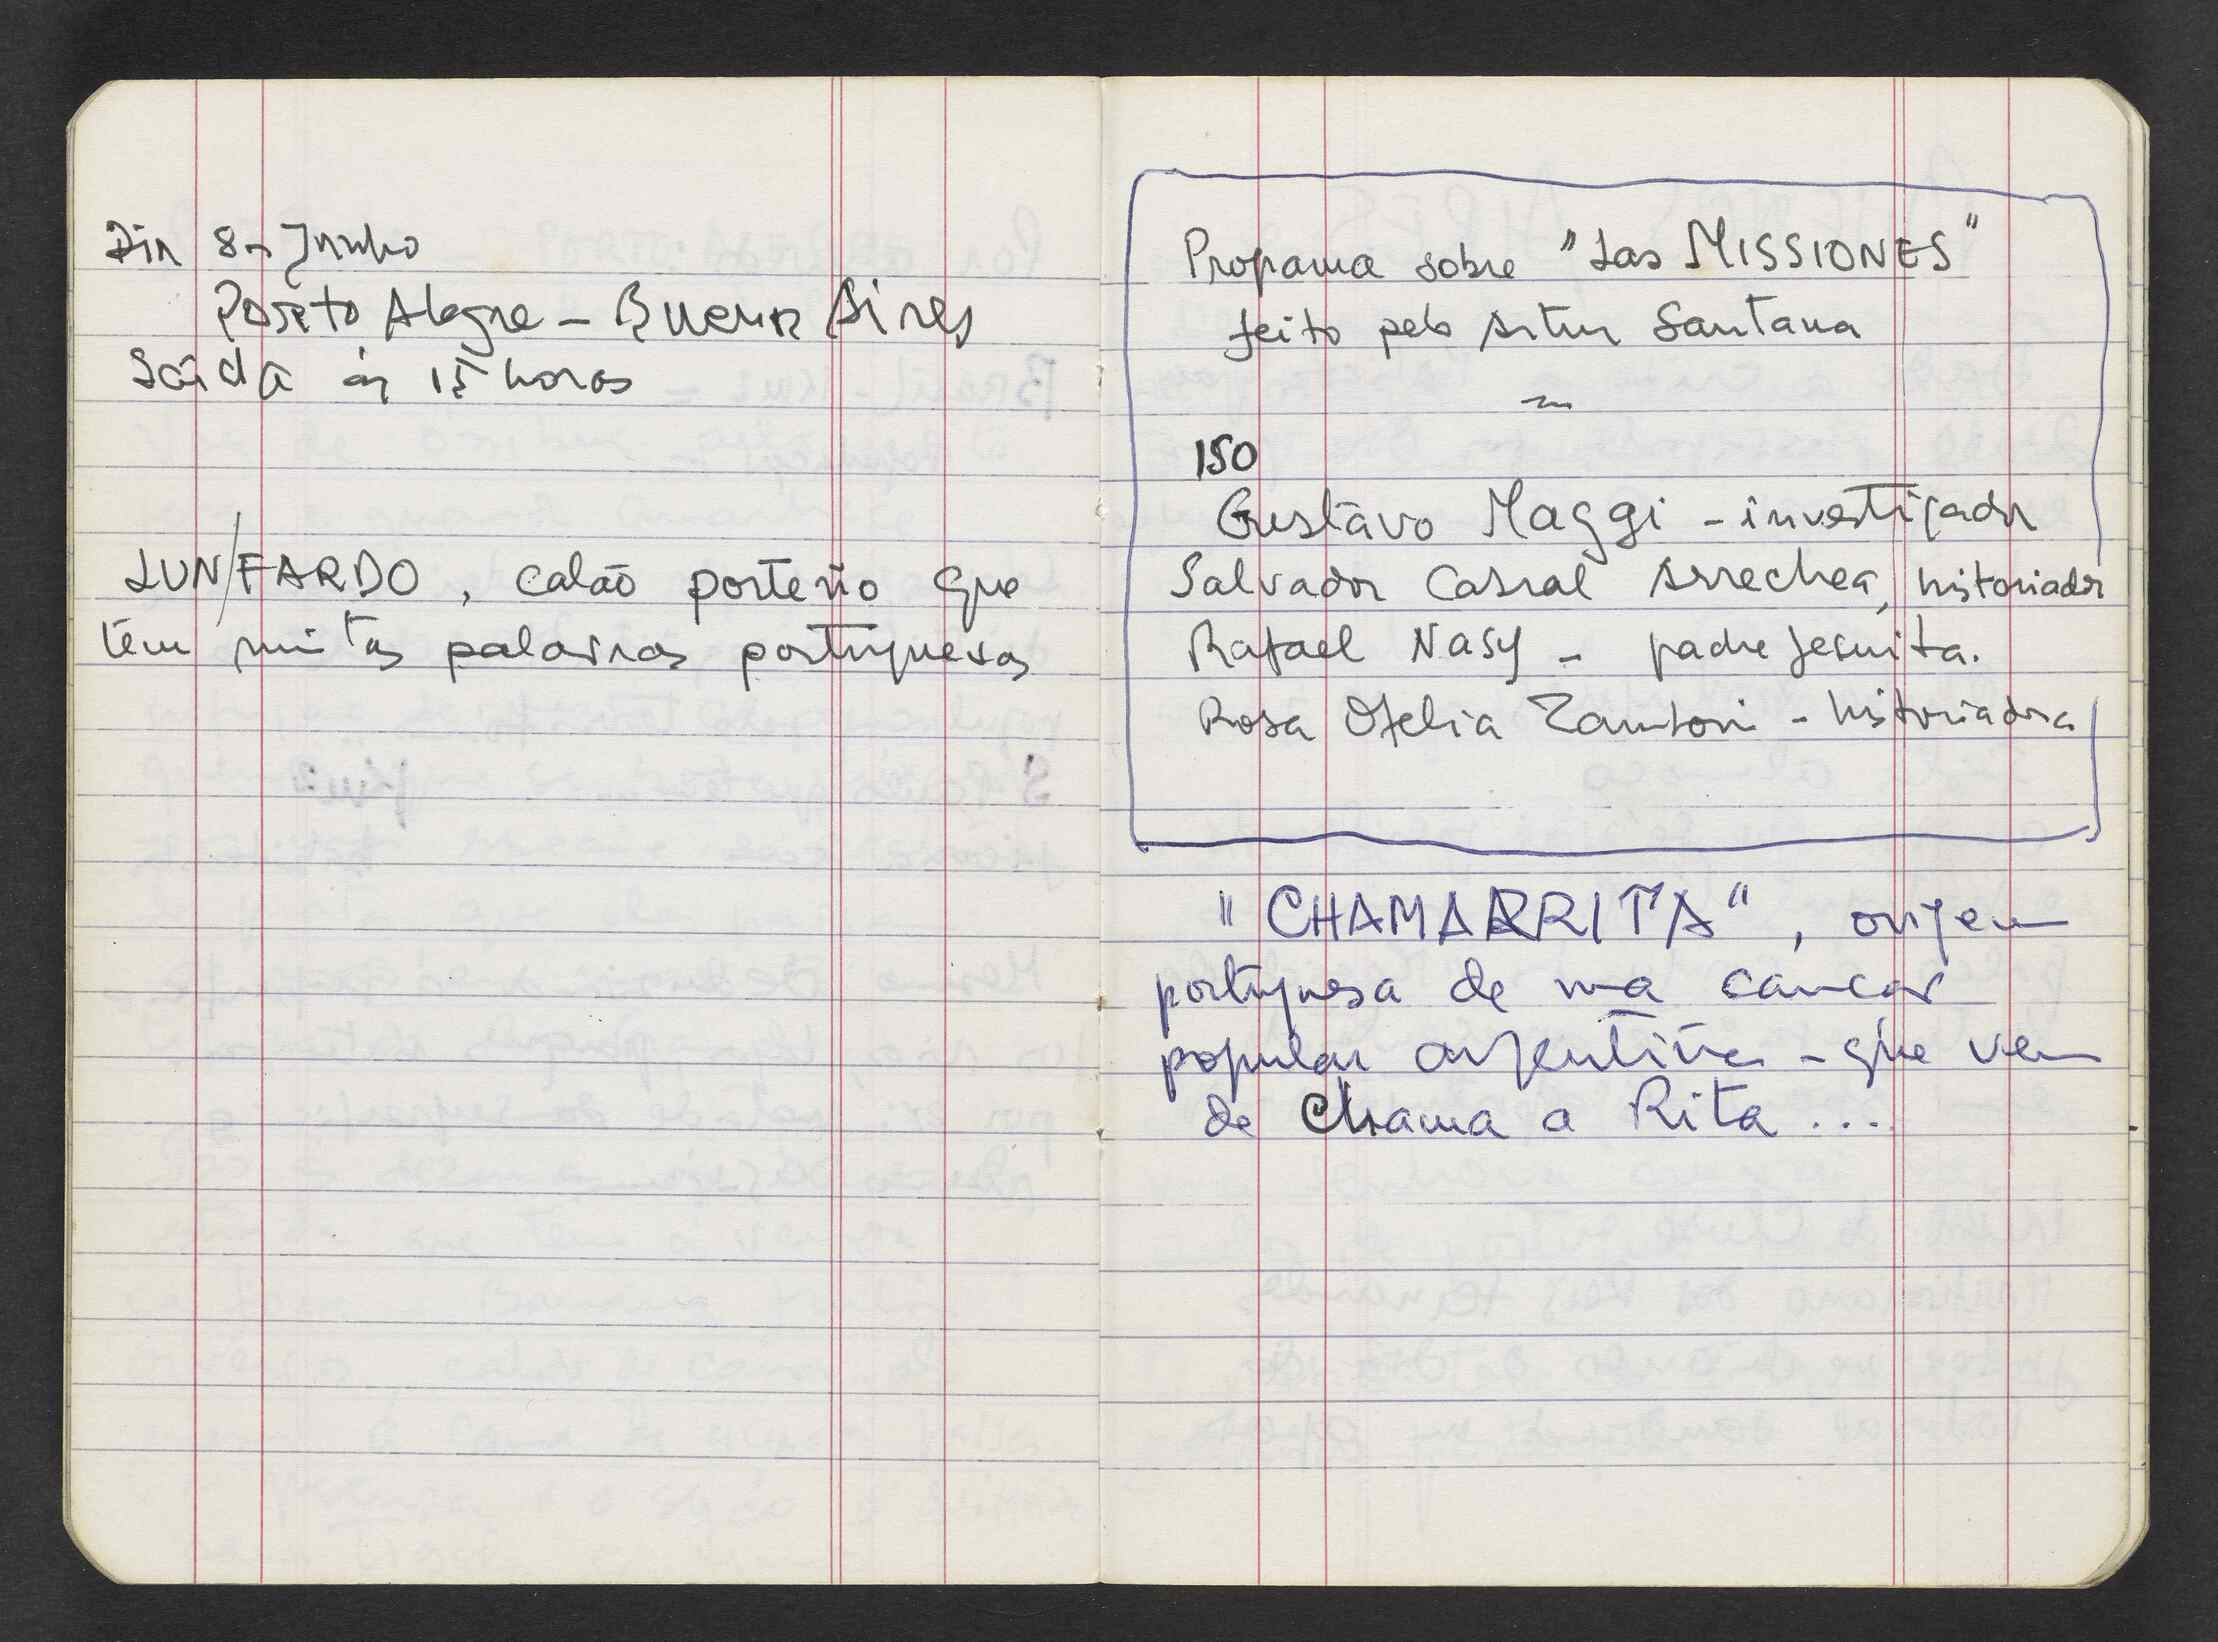 Dia 8 - Junho
Porto Alegre - Buenos Aires
Saída às 15 horas
LUN/FARDO, calão porteño que
tem muitas palavras portuguesas
Programa sobre "Las MISSIONES"
feito pelo Artur Santana
~
150
Gustavo Maggi - investigador
Salvador Cabral Arrechea, historiador
Rafael Nasy - padre jesuita.
Rosa Ofelia Zamboni - historiadora
"CHAMARRITA", origem
portuguesa de uma cancão
popular argentina - que vem
de Chama a Rita ...